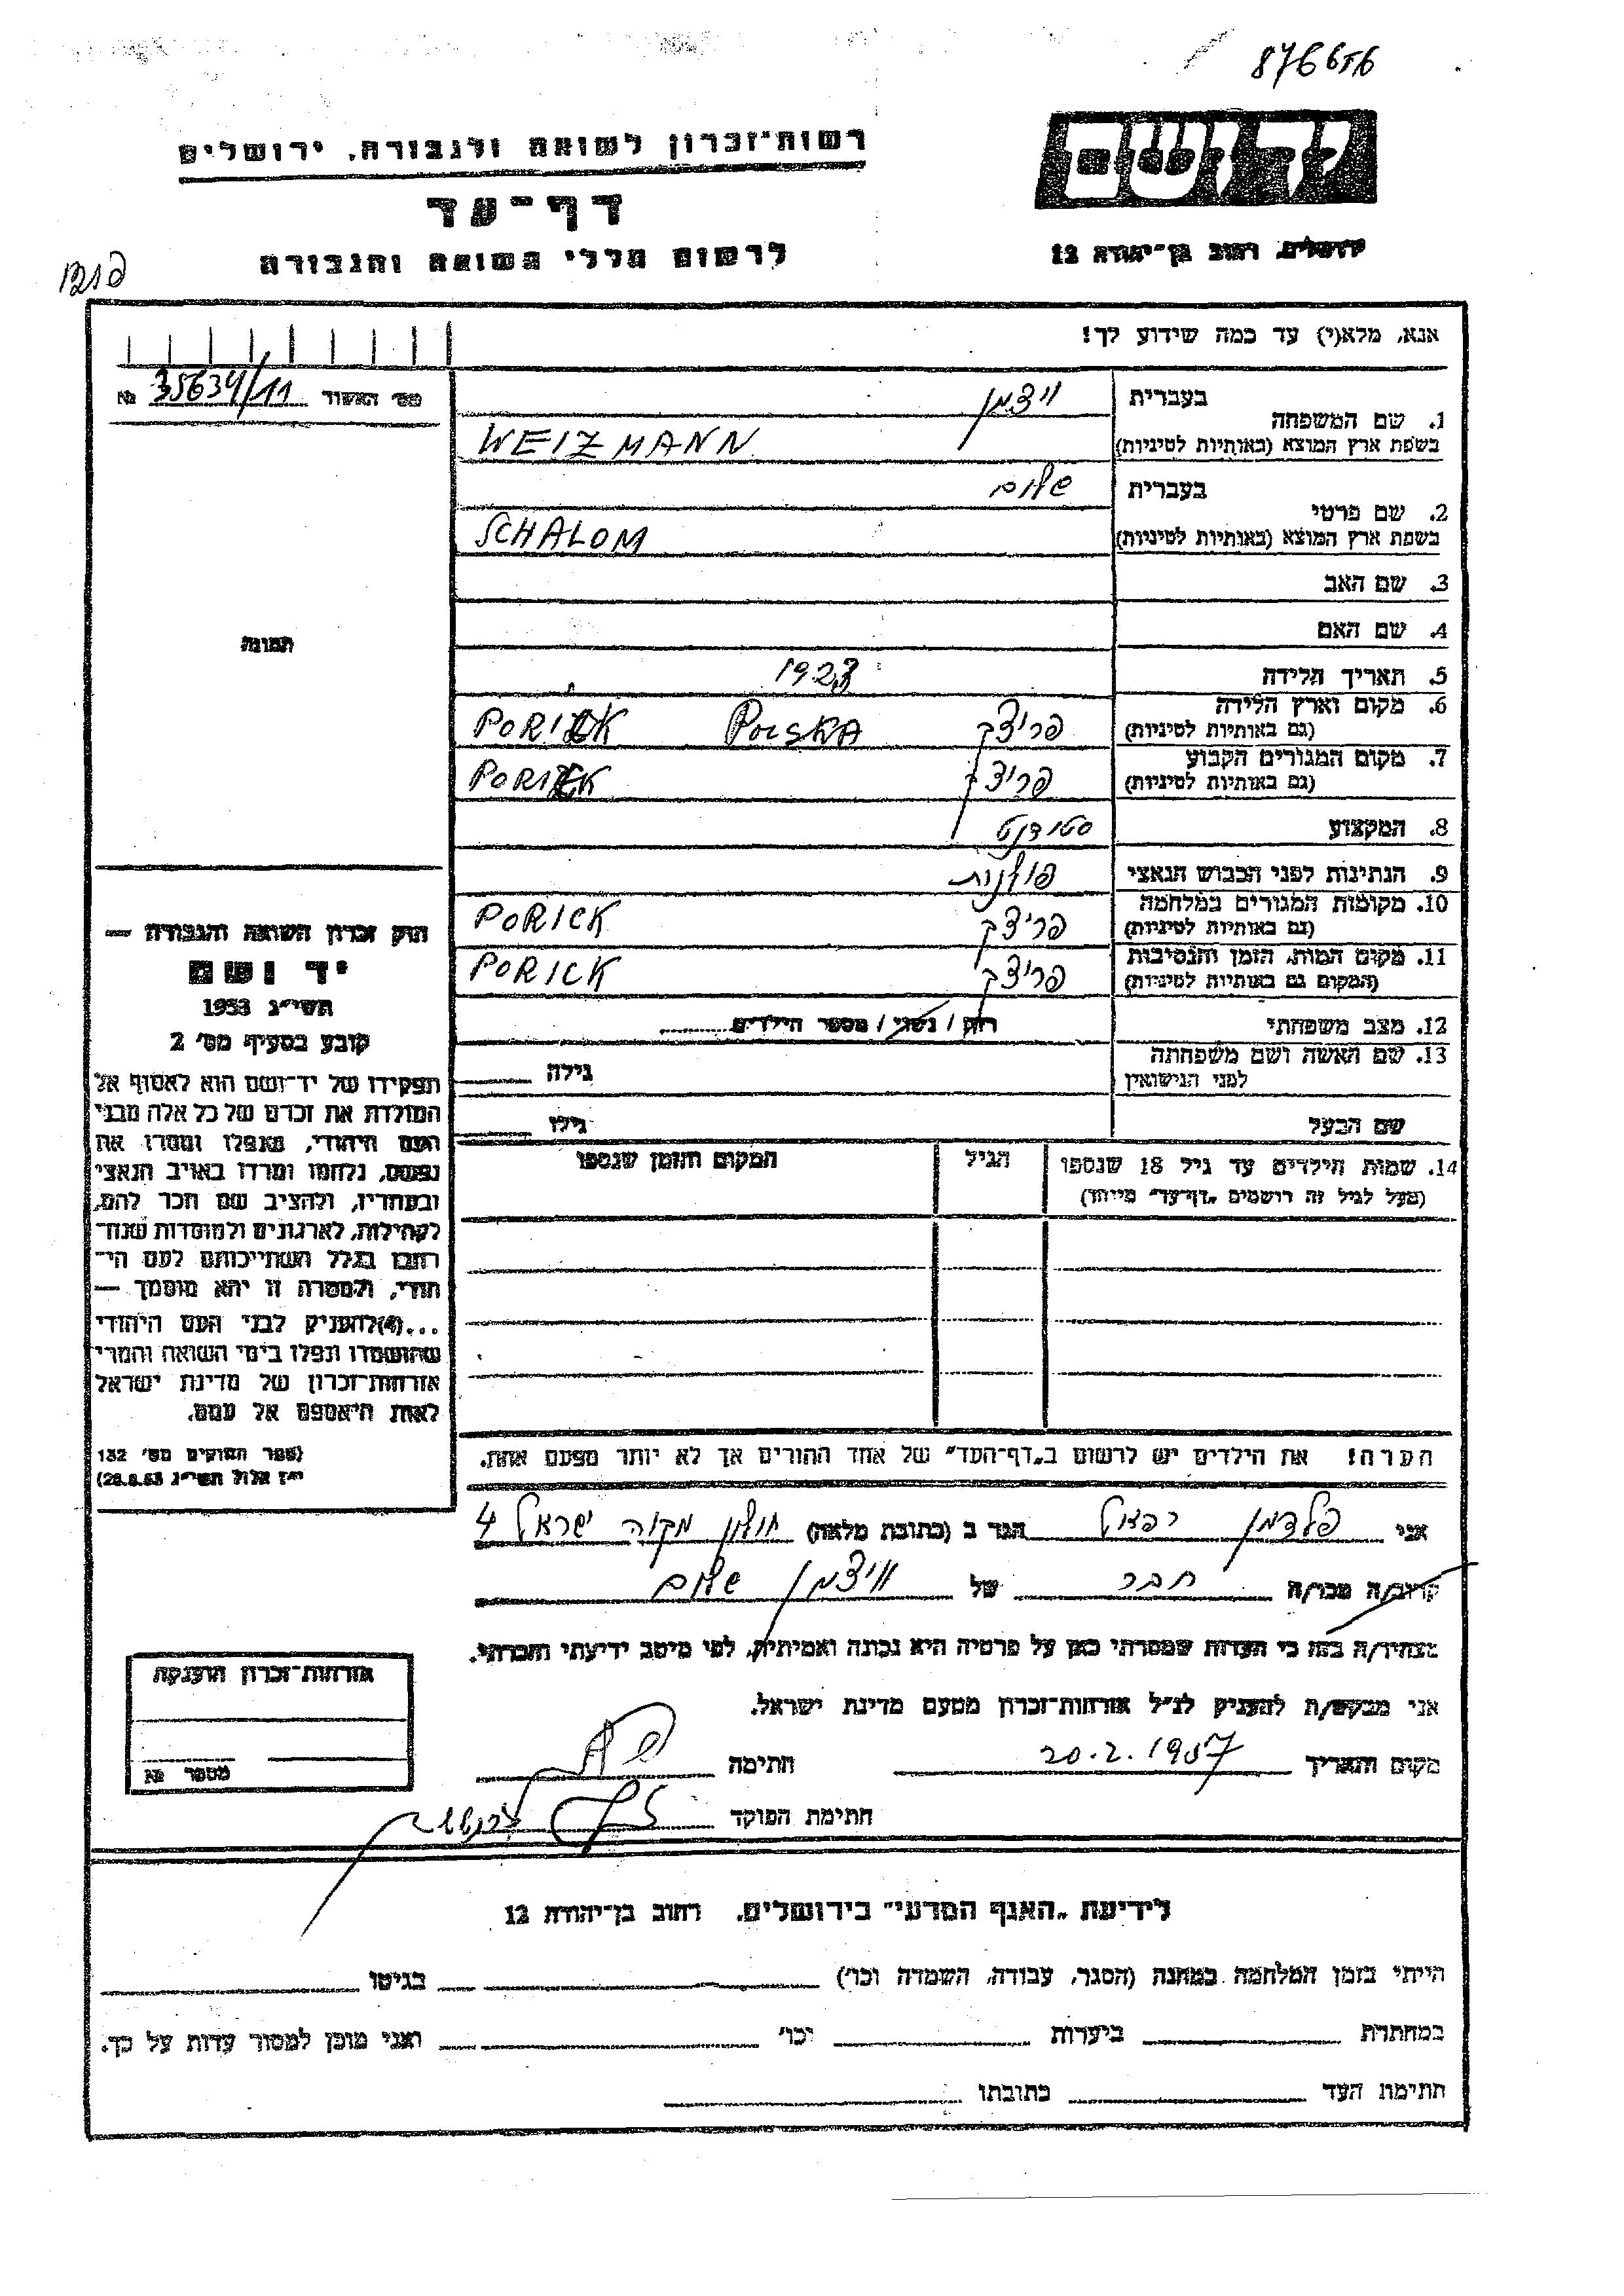 876656
יד ושם
רשות־זכרון לשואה ולגבורה, ירושלים
דף־עד
ירושלים, רחוב בן־יהודה 12
לרשום חללי השואה והגבורה
אנא, מלא(י) עד כמה שידוע לך!
מס׳ האשור 35634/11 №
1. שם המשפחה
בעברית ויצמן
בשפת ארץ המוצא (באותיות לטיניות) WEIZMANN
2. שם פרטי
בעברית שלום
בשפת ארץ המוצא (באותיות לטיניות) SCHALOM
3. שם האב
4. שם האם
תמונה
5. תאריך הלידה 1923
6. מקום וארץ הלידה
(גם באותיות לטיניות) פריצק POLSKA PORICK
7. מקום המגורים הקבוע
(גם באותיות לטיניות) פריצק PORICK
8. המקצוע סטודנט
9. הנתינות לפני הכבוש הנאצי פולנית
10. מקומות המגורים במלחמה
(גם באותיות לטיניות) פריצק PORICK
11. מקום המות, הזמן והנסיבות
(המקום גם באותיות לטיניות) פריצק PORICK
12. מצב משפחתי רווק / נשוי / מספר הילדים
13. שם האשה ושם משפחתה
לפני הנישואין גילה
שם הבעל גילו
14. שמות הילדים עד גיל 18 שנספו
(מעל לגיל זה רושמים „דף־עד״ מיוחד)
הגיל
המקום והזמן שנספו
חוק זכרון השואה והגבורה —
יד ושם
תשי״ג 1953
קובע בסעיף מס׳ 2
תפקידו של יד־ושם הוא לאסוף אל
המולדת את זכרם של כל אלה מבני
העם היהודי, שנפלו ומסרו את
נפשם, נלחמו ומרדו באויב הנאצי
ובעוזריו, ולהציב שם וזכר להם,
לקהילות, לארגונים ולמוסדות שנח־
רבו בגלל השתייכותם לעם הי־
הודי, ולמטרה זו יהא מוסמך —
...(4)להעניק לבני העם היהודי
שהושמדו ונפלו בימי השואה והמרי
אזרחות־זכרון של מדינת ישראל
לאות היאספם אל עמם.
(ספר החוקים מס׳ 132
י״ז אלול תשי״ג 28.8.53)
הערה! את הילדים יש לרשום ב„דף־העד״ של אחד ההורים אך לא יותר מפעם אחת.
אני פלדמן רפאל הגר ב (כתובת מלאה) חולון מקוה ישראל 4
קרוב/ה מכר/ה חבר של וויצמן שלום
מצהיר/ה בזה כי העדות שמסרתי כאן על פרטיה היא נכונה ואמיתית, לפי מיטב ידיעתי והכרתי.
אני מבקש/ת להעניק לנ״ל אזרחות־זכרון מטעם מדינת ישראל.
מקום ותאריך 20.2.1957 חתימה
חתימת הפוקד
אזרחות־זכרון הוענקה
מספר №
לידיעת „האגף המדעי״ בירושלים. רחוב בן־יהודה 12
הייתי בזמן המלחמה במחנה (הסגר, עבודה, השמדה וכו׳) בגיטו
במחתרת ביערות וכו׳ ואני מוכן למסור עדות על כך.
חתימת העד כתובתו